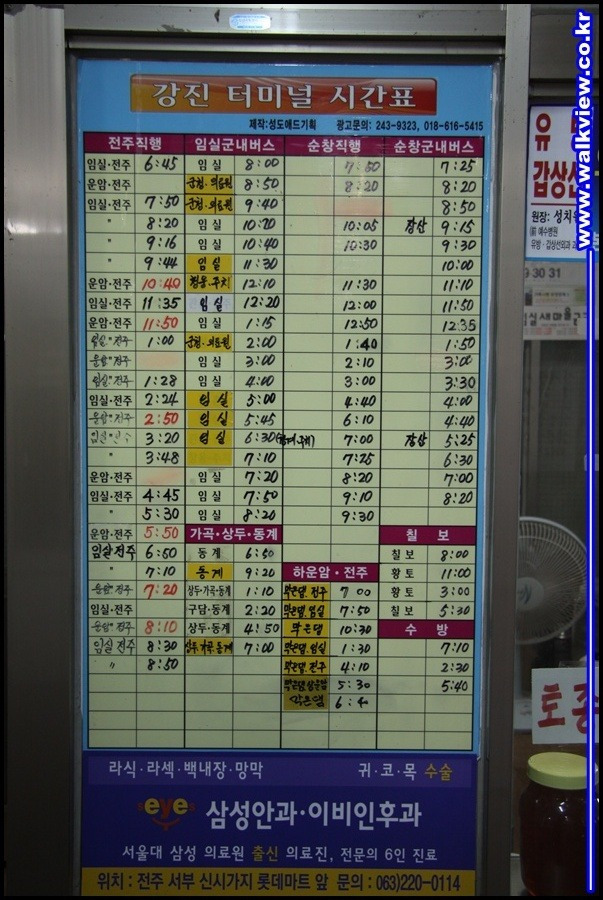 www.walkview.co.kr
강진 터미널 시간표
제작:성도애드기획 광고문의: 243-9323, 018-616-5415
전주직행 임실군내버스 순창직행 순창군내버스
임실·전주 6:45 임실 8:00 7:50 7:25
운암·전주 군청·의료원 8:50 8:20 8:20
임실·전주 7:50 군청·의료원 9:40 8:50
" 8:20 임실 10:20 10:05 갈산 9:15
" 9:16 임실 10:40 10:30 9:30
" 9:44 임실 11:30 10:00
운암·전주 10:40 12:10 11:30 11:10
임실·전주 11:35 임실 12:20 12:00 11:50
운암·전주 11:50 임실 1:15 12:50 12:35
임실·전주 1:00 군청·의료원 2:00 1:40 1:50
운암·전주 임실 3:00 2:10 3:00
임실·전주 1:28 임실 4:00 3:00 3:30
임실·전주 2:24 임실 5:00 4:40 4:00
운암·전주 2:50 임실 5:45 6:10 4:40
임실·전주 3:20 임실 6:30 7:00 갈산 5:25
" 3:48 7:10 7:25 6:30
운암·전주 임실 7:20 8:20 7:00
임실·전주 4:45 임실 7:50 9:10 8:20
" 5:30 임실 8:20 9:30
운암·전주 5:50 가곡·상두·동계 칠보
임실전주 6:50 동계 6:50 칠보 8:00
" 7:10 동계 9:20 하운암·전주 황토 11:00
운암·전주 7:20 상두·가곡·동계 1:10 막은댐·전주 7:00 황토 3:00
임실·전주 구담·동계 2:20 막은댐·임실 7:50 칠보 5:30
운암·전주 8:10 상두·동계 4:50 막은댐 10:30 수방
임실·전주 8:30 상두·가곡·동계 7:00 막은댐·임실 1:30 7:10
" 8:50 막은댐·전주 4:10 2:30
막은댐·상운암 5:30 5:40
막은댐 6:40
라식·라섹·백내장·망막 귀·코·목 수술
eye 삼성안과·이비인후과
서울대 삼성 의료원 출신 의료진, 전문의 6인 진료
위치 : 전주 서부 신시가지 롯데마트 앞 문의 : 063)220-0114
유
갑상선
원장: 성치
(前 예수병원
유방·갑상선외과
29 30 31
토종